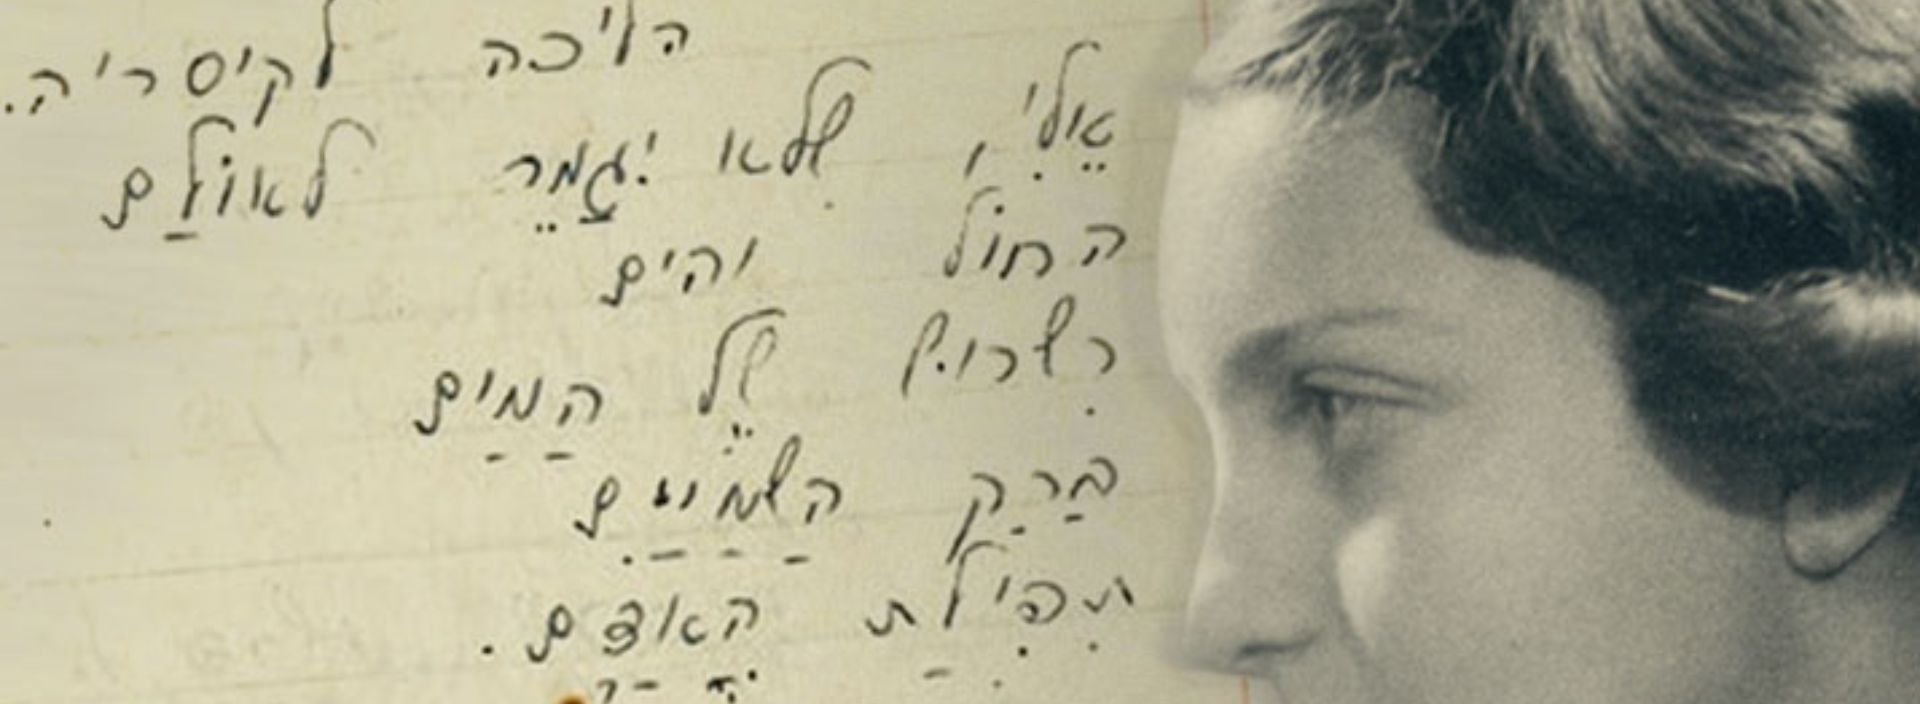 הליכה לקיסריה.
אֵלִי, שֶׁלֹא יִגָמֵר לְאוֹלָם
החול והים
רִשרוּש שֵׁל הַמַים
בָּרָק הַשָמַיִם
תְּפִילַת הָאָדָם.